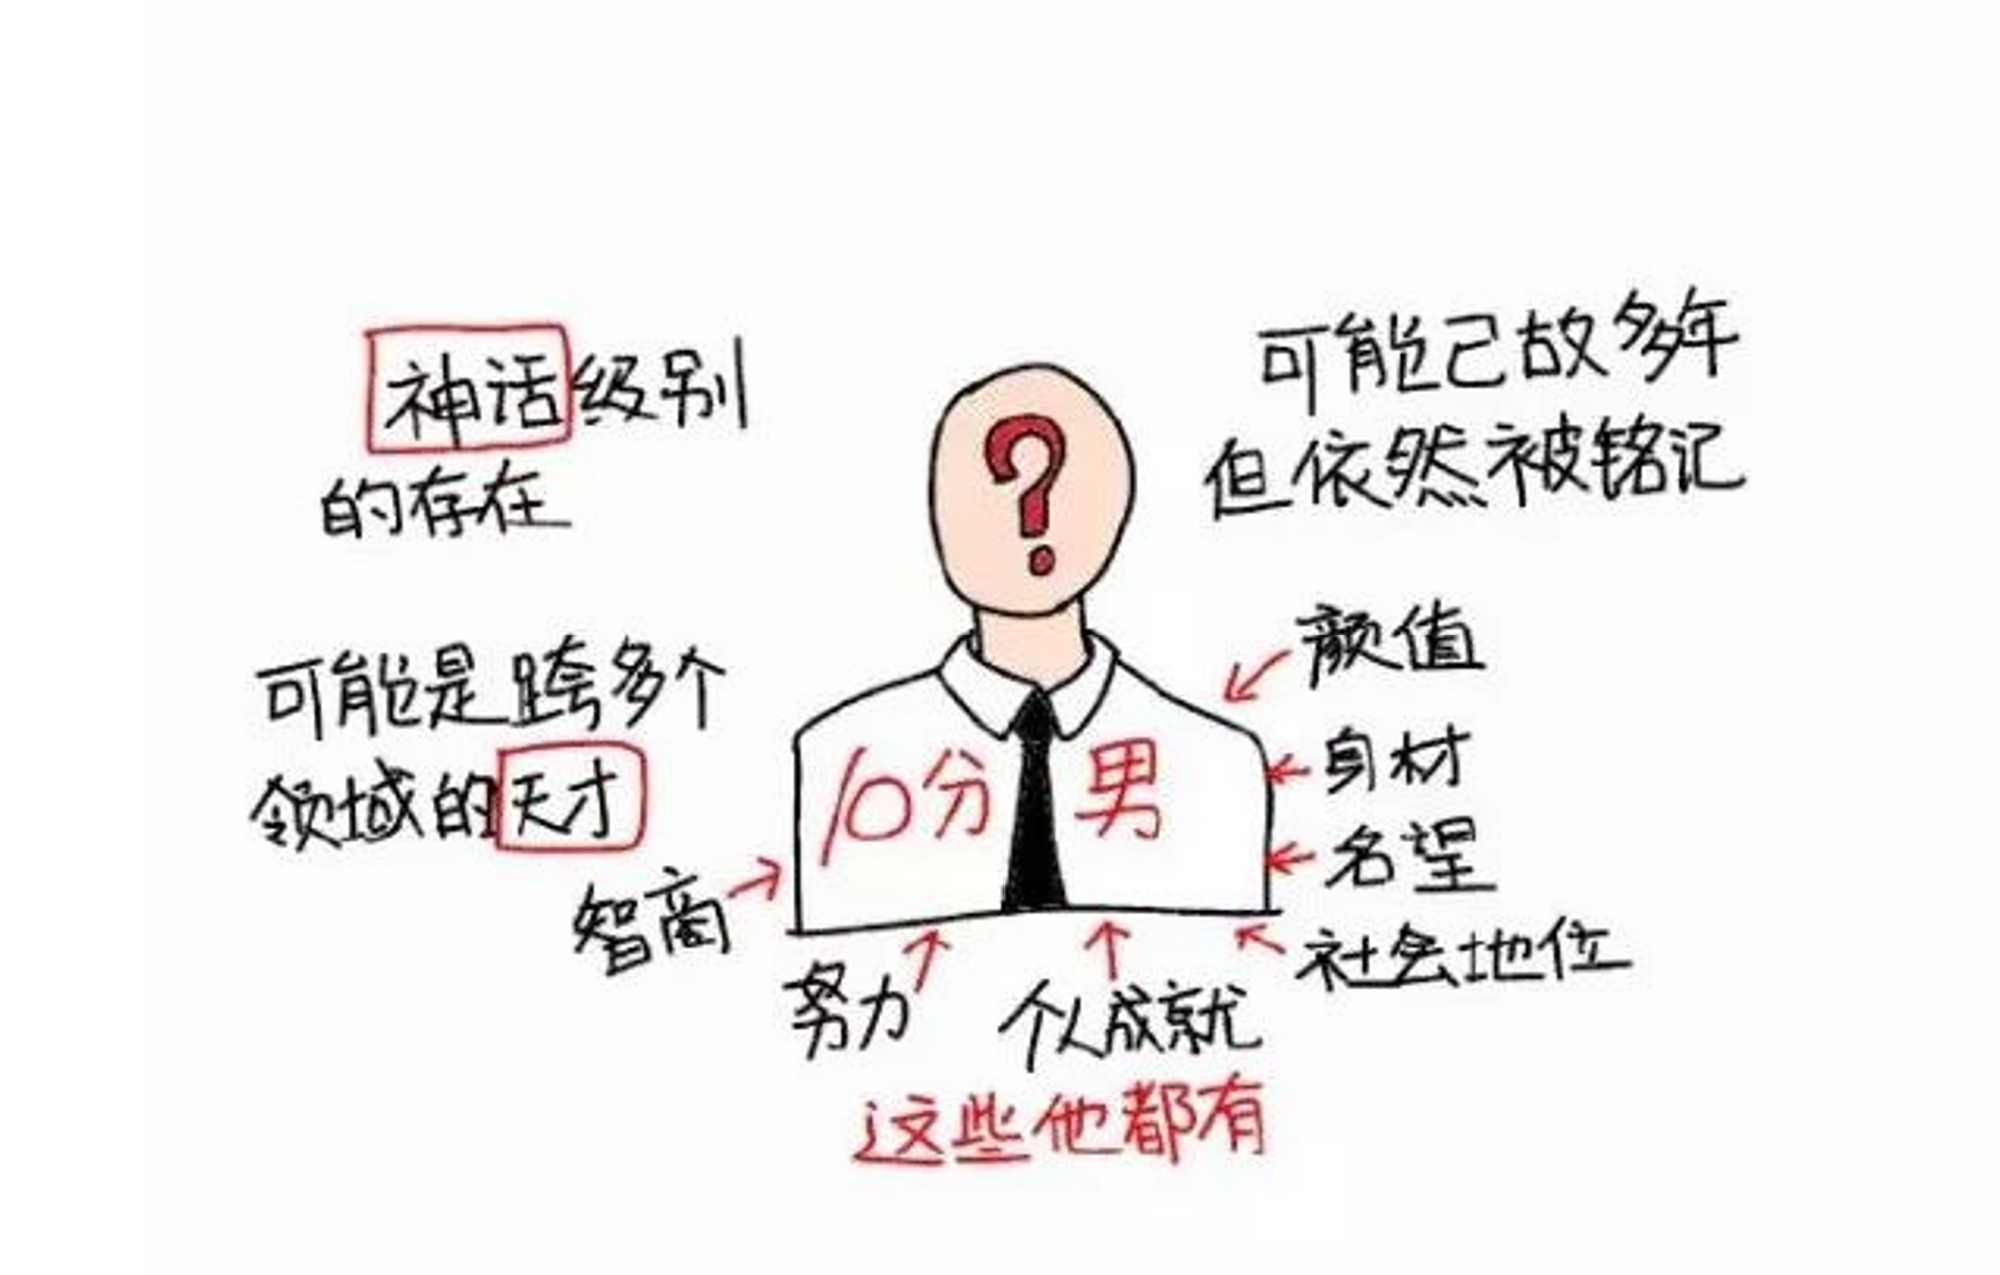 神话级别
的存在
可能已故多年
但依然被铭记
?
可能是跨多个
领域的天才
10分 男
颜值
身材
名望
社会地位
智商
努力
个人成就
这些他都有